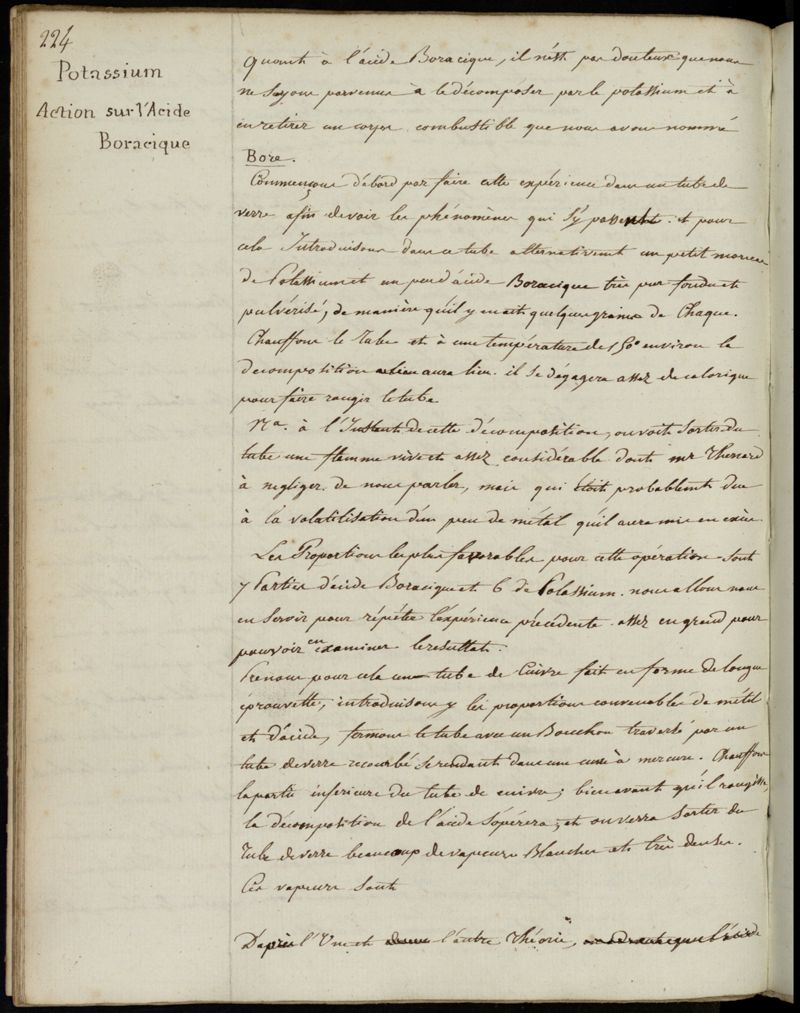 224
Potassium
Action sur l'Acide
Boracique
Quant à l'acide Boracique, il n'est pas douteux que nous
ne soyons parvenus à le décomposer par le potassium et à
en retirer un corps combustible que nous avons nommé
Bore.
Commençons d'abord par faire cette expérience dans un tube de
verre afin de voir les phénomènes qui s'y passent. et pour
cela Introduisons dans ce tube alternativement un petit morceau
de Potassium et un peu d'acide Boracique très pur fondu et
pulvérisé, de manière qu'il y en ait quelques grains de Chaque.
Chauffons le Tube et à une température de 150° environ la
décomposition aura lieu. il se dégagera assez de calorique
pour faire rougir le tube
Na. à l'Instant de cette décomposition, on voit sortir du
tube une flamme vive et assez considérable dont mr Thenard
à négliger de nous parler, mais qui étoit probablement due
à la volatilisation d'un peu de métal qu'il aura mis en excès.
Les Proportions les plus favorables pour cette opération sont
7 Parties d'acide Boracique et 6 de Potassium. nous allons nous
en servir pour répéter l'expérience précédente assez en grand pour
pouvoir en examiner le resultat.
Prenons pour cela un tube de Cuivre fait en forme de longue
éprouvette, introduisons y les proportions convenables de métal
et d'acide, fermons le tube avec un Bouchon traversé par un
tube de verre recourbé se rendant dans une cuve à mercure. Chauffons
la partie inferieure du tube de cuivre; bien avant qu'il rougisse,
la décomposition de l'acide s'opérera, et on verra sortir du
Tube de verre beaucoup de vapeurs Blanches et très denses.
Ces vapeurs sont
D'après l'Une et l'autre Théorie,